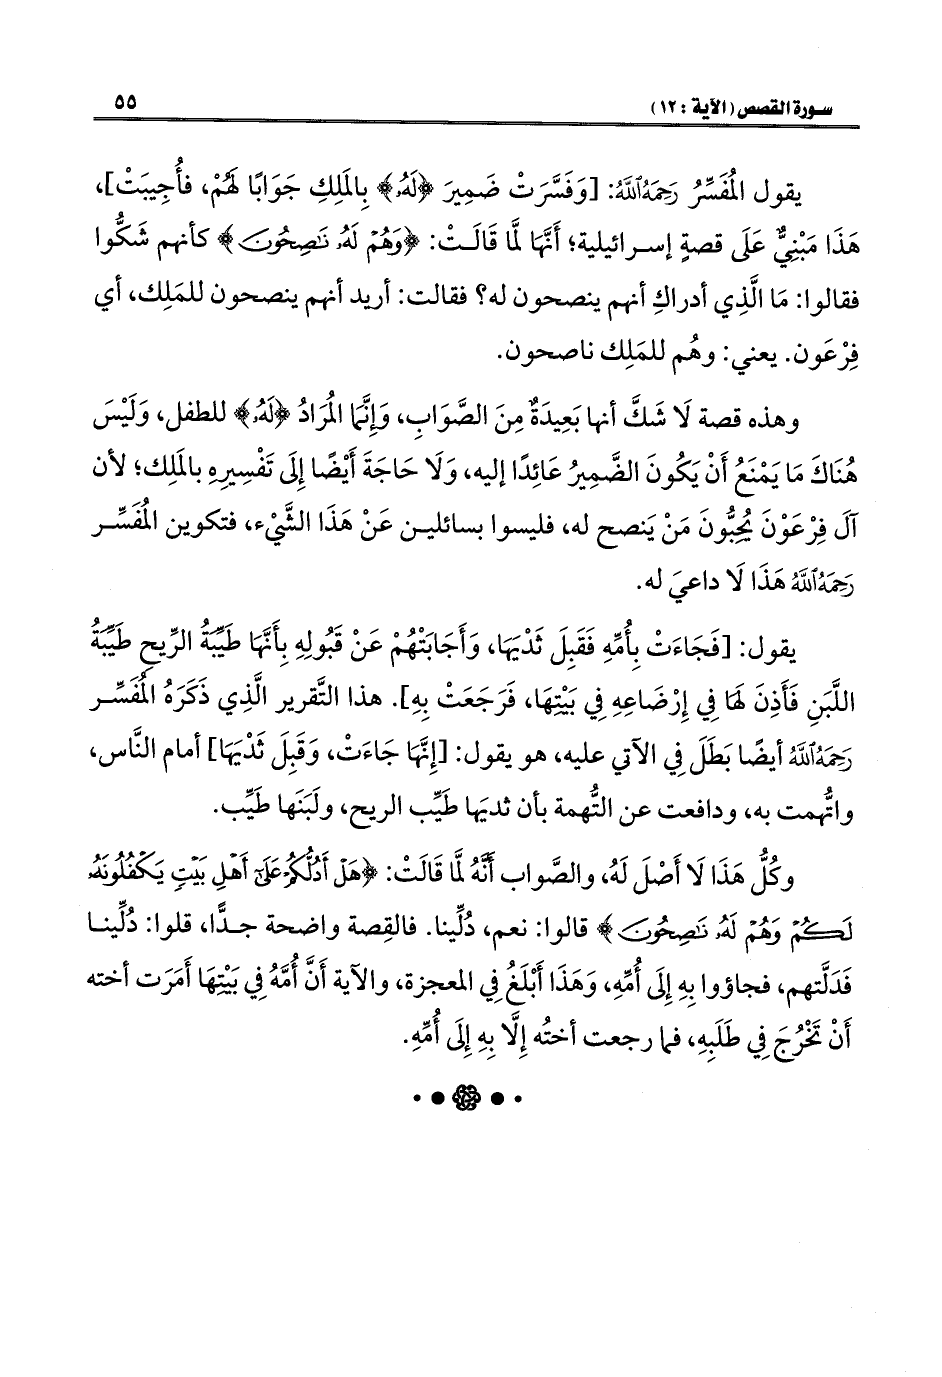 سورة القصص (الآية : ١٢) ٥٥
يقول المُفَسِّرُ رَحِمَهُ اللَّهُ: [وَفَسَّرَتْ ضَمِيرَ ﴿لَهُۥ﴾ بِالمَلِكِ جَوَابًا لَهُمْ، فَأُجِيبَتْ]،
هَذَا مَبْنِيٌّ عَلَى قصةٍ إسرائيلية؛ أَنَّهَا لَمَّا قَالَتْ: ﴿وَهُمْ لَهُۥ نَٰصِحُونَ﴾ كأنهم شَكُّوا
فقالوا: مَا الَّذِي أدراكِ أنهم ينصحون له؟ فقالت: أريد أنهم ينصحون للمَلِك، أي
فِرْعَون. يعني: وهُم للمَلِك ناصحون.
وهذه قصة لَا شَكَّ أنها بَعِيدَةٌ مِنَ الصَّوَابِ، وَإِنَّمَا المُرَادُ ﴿لَهُۥ﴾ للطفل، وَلَيْسَ
هُنَاكَ مَا يَمْنَعُ أَنْ يَكُونَ الضَّمِيرُ عَائِدًا إليه، وَلَا حَاجَةَ أَيْضًا إِلَى تَفْسِيرِهِ بالمَلِك؛ لأن
آلَ فِرْعَوْنَ يُحِبُّونَ مَنْ يَنصح له، فليسوا بسائلين عَنْ هَذَا الشَّيْء، فتكوين المُفَسِّر
رَحِمَهُ اللَّهُ هَذَا لَا داعيَ له.
يقول: [فَجَاءَتْ بِأُمِّهِ فَقَبِلَ ثَدْيَهَا، وَأَجَابَتْهُمْ عَنْ قَبُولِهِ بِأَنَّهَا طَيِّبَةُ الرِّيحِ طَيِّبَةُ
اللَّبَنِ فَأَذِنَ لَهَا فِي إِرْضَاعِهِ فِي بَيْتِهَا، فَرَجَعَتْ بِهِ]. هذا التَّقرير الَّذِي ذَكَرَهُ المُفَسِّر
رَحِمَهُ اللَّهُ أيضًا بَطَلَ فِي الآتي عليه، هو يقول: [إِنَّهَا جَاءَتْ، وَقَبِلَ ثَدْيَهَا] أمام النَّاس،
واتُّهمت به، ودافعت عن التُّهمة بأن ثديَها طَيِّب الريح، ولَبَنَها طَيِّب.
وَكُلُّ هَذَا لَا أَصْلَ لَهُ، والصَّواب أَنَّهُ لَمَّا قَالَتْ: ﴿هَلْ أَدُلُّكُمْ عَلَىٰٓ أَهْلِ بَيْتٍ يَكْفُلُونَهُۥ
لَكُمْ وَهُمْ لَهُۥ نَٰصِحُونَ﴾ قالوا: نعم، دُلِّينا. فالقِصة واضحة جدًّا، قلوا: دُلِّينا
فَدَلَّتهم، فجاؤوا بِهِ إِلَى أُمِّهِ، وَهَذَا أَبْلَغُ فِي المعجزة، والآية أَنَّ أُمَّهُ فِي بَيْتِهَا أَمَرَت أخته
أَنْ تَخْرُجَ فِي طَلَبِهِ، فما رجعت أختُه إِلَّا بِهِ إِلَى أُمِّهِ.